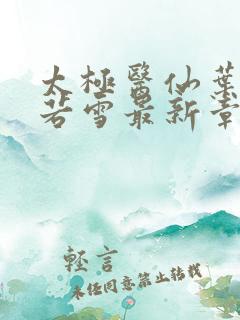 太極醫仙葉
若雪最新章
輕言
未經同意禁止轉載